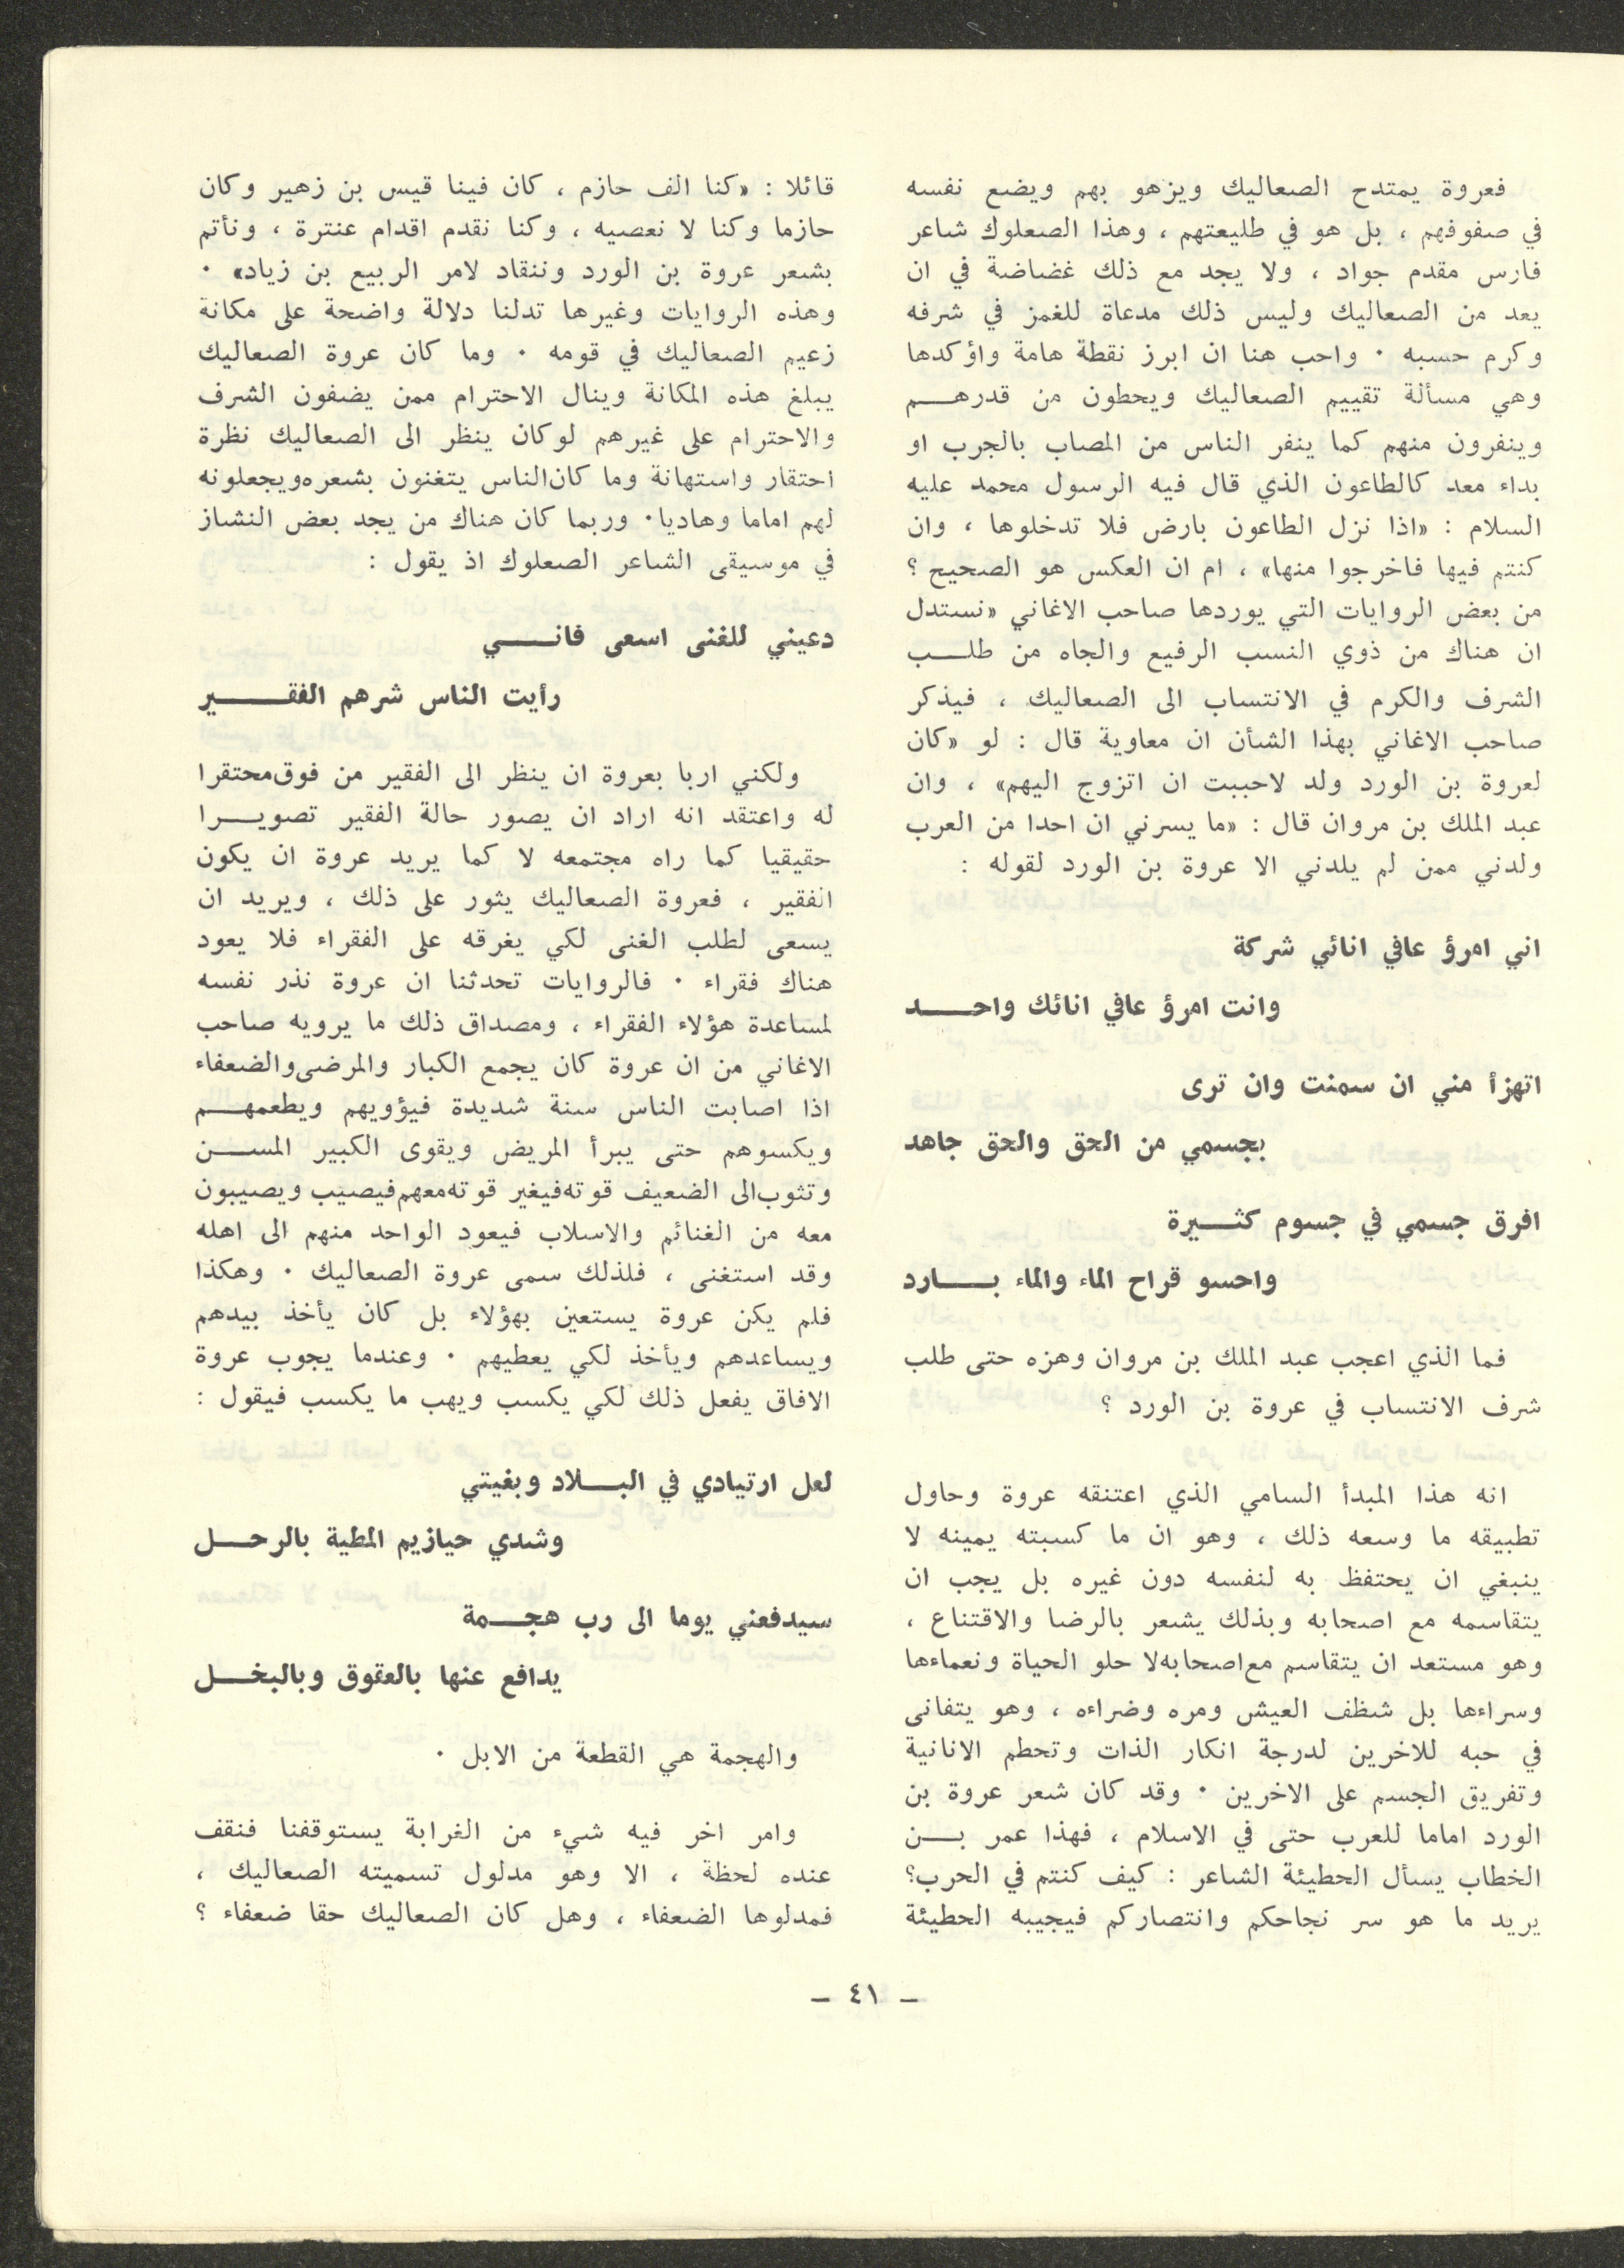 فعروة يمتدح الصعاليك ويزهو بهم ويضع نفسه
في صفوفهم ، بل هو في طليعتهم ، وهذا الصعلوك شاعر
فارس مقدم جواد ، ولا يجد مع ذلك غضاضة في ان
يعد من الصعاليك وليس ذلك مدعاة للغمز في شرفه
وكرم حسبه ٠ واحب هنا ان ابرز نقطة هامة واؤكدها
وهي مسألة تقييم الصعاليك ويحطون من قدرهم
وينفرون منهم كما ينفر الناس من المصاب بالجرب او
بداء معد كالطاعون الذي قال فيه الرسول محمد عليه
السلام : «اذا نزل الطاعون بارض فلا تدخلوها ، وان
كنتم فيها فاخرجوا منها» ، ام ان العكس هو الصحيح ؟
من بعض الروايات التي يوردها صاحب الاغاني «نستدل
ان هناك من ذوي النسب الرفيع والجاه من طلب
الشرف والكرم في الانتساب الى الصعاليك ، فيذكر
صاحب الاغاني بهذا الشأن ان معاوية قال : لو «كان
لعروة بن الورد ولد لاحببت ان اتزوج اليهم» ، وان
عبد الملك بن مروان قال : «ما يسرني ان احدا من العرب
ولدني ممن لم يلدني الا عروة بن الورد لقوله :
اني امرؤ عافي انائي شركة
وانت امرؤ عافي انائك واحد
اتهزأ مني ان سمنت وان ترى
بجسمي من الحق والحق جاهد
افرق جسمي في جسوم كثيرة
واحسو قراح الماء والماء بارد
فما الذي اعجب عبد الملك بن مروان وهزه حتى طلب
شرف الانتساب في عروة بن الورد ؟
انه هذا المبدأ السامي الذي اعتنقه عروة وحاول
تطبيقه ما وسعه ذلك ، وهو ان ما كسبته يمينه لا
ينبغي ان يحتفظ به لنفسه دون غيره بل يجب ان
يتقاسمه مع اصحابه وبذلك يشعر بالرضا والاقتناع ،
وهو مستعد ان يتقاسم مع اصحابه لا حلو الحياة ونعماءها
وسراءها بل شظف العيش ومره وضراءه ، وهو يتفانى
في حبه للاخرين لدرجة انكار الذات وتحطم الانانية
وتفريق الجسم على الاخرين ٠ وقد كان شعر عروة بن
الورد اماما للعرب حتى في الاسلام ، فهذا عمر بن
الخطاب يسأل الحطيئة الشاعر : كيف كنتم في الحرب؟
يريد ما هو سر نجاحكم وانتصاركم فيجيبه الحطيئة
قائلا : «كنا الف حازم ، كان فينا قيس بن زهير وكان
حازما وكنا لا نعصيه ، وكنا نقدم اقدام عنترة ، ونأتم
بشعر عروة بن الورد وننقاد لامر الربيع بن زياد» ٠
وهذه الروايات وغيرها تدلنا دلالة واضحة على مكانة
زعيم الصعاليك في قومه ٠ وما كان عروة الصعاليك
يبلغ هذه المكانة وينال الاحترام ممن يضفون الشرف
والاحترام على غيرهم لو كان ينظر الى الصعاليك نظرة
احتقار واستهانة وما كان الناس يتغنون بشعره ويجعلونه
لهم اماما وهاديا٠ وربما كان هناك من يجد بعض النشاز
في موسيقى الشاعر الصعلوك اذ يقول :
دعيني للغنى اسعى فاني
رأيت الناس شرهم الفقير
ولكني اربا بعروة ان ينظر الى الفقير من فوق محتقرا
له واعتقد انه اراد ان يصور حالة الفقير تصويرا
حقيقيا كما راه مجتمعه لا كما يريد عروة ان يكون
الفقير ، فعروة الصعاليك يثور على ذلك ، ويريد ان
يسعى لطلب الغنى لكي يغرقه على الفقراء فلا يعود
هناك فقراء ٠ فالروايات تحدثنا ان عروة نذر نفسه
لمساعدة هؤلاء الفقراء ، ومصداق ذلك ما يرويه صاحب
الاغاني من ان عروة كان يجمع الكبار والمرضى والضعفاء
اذا اصابت الناس سنة شديدة فيؤويهم ويطعمهم
ويكسوهم حتى يبرأ المريض ويقوى الكبير المسن
وتثوب الى الضعيف قوته فيغير قوته معهم فيصيب ويصيبون
معه من الغنائم والاسلاب فيعود الواحد منهم الى اهله
وقد استغنى ، فلذلك سمى عروة الصعاليك ٠ وهكذا
فلم يكن عروة يستعين بهؤلاء بل كان يأخذ بيدهم
ويساعدهم ويأخذ لكي يعطيهم ٠ وعندما يجوب عروة
الافاق يفعل ذلك لكي يكسب ويهب ما يكسب فيقول :
لعل ارتيادي في البلاد وبغيتي
وشدي حيازيم المطية بالرحل
سيدفعني يوما الى رب هجمة
يدافع عنها بالعقوق وبالبخل
والهجمة هي القطعة من الابل ٠
وامر اخر فيه شيء من الغرابة يستوقفنا فنقف
عنده لحظة ، الا وهو مدلول تسميته الصعاليك ،
فمدلوها الضعفاء ، وهل كان الصعاليك حقا ضعفاء ؟
– ٤١ –